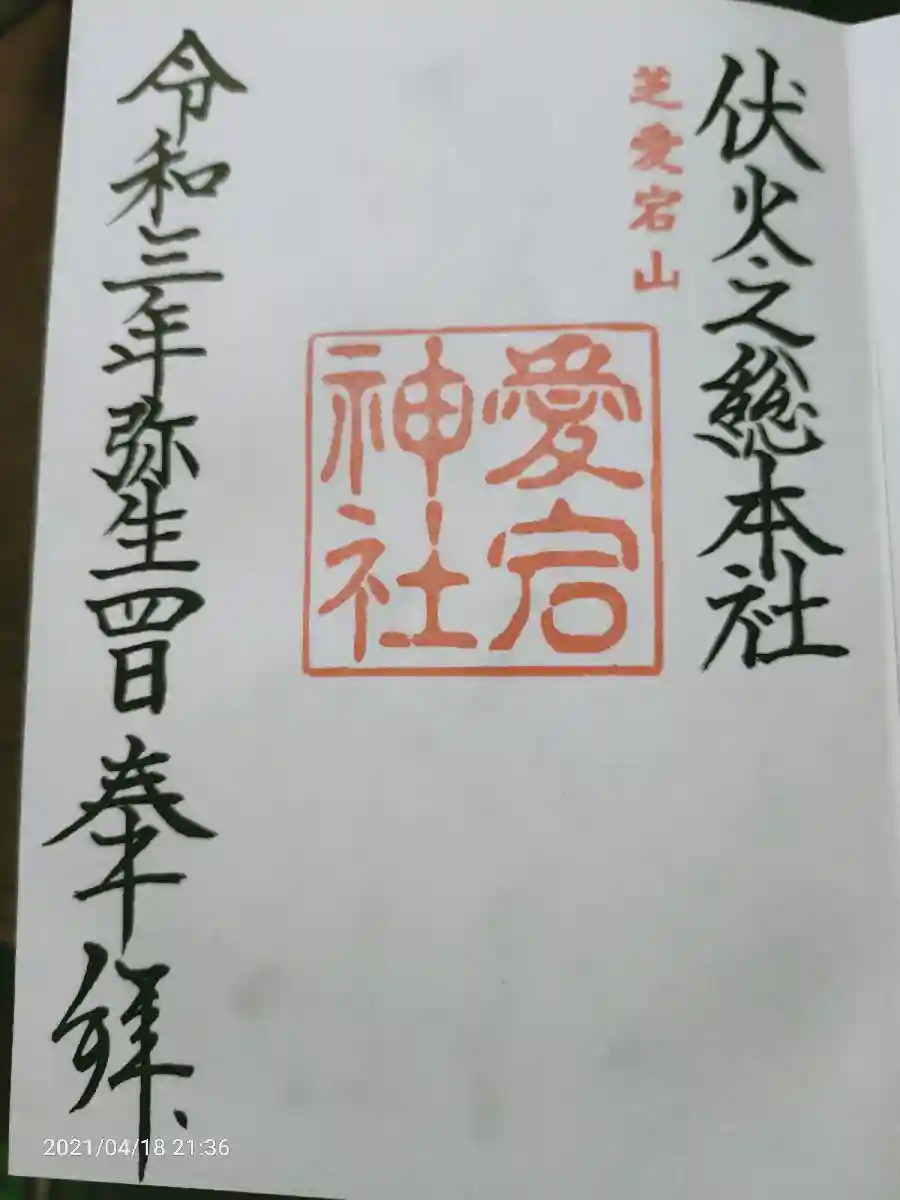 伏火之総本社
芝愛宕山
愛宕
神社
令和三年弥生四日 奉拝
2021/04/18 21:36